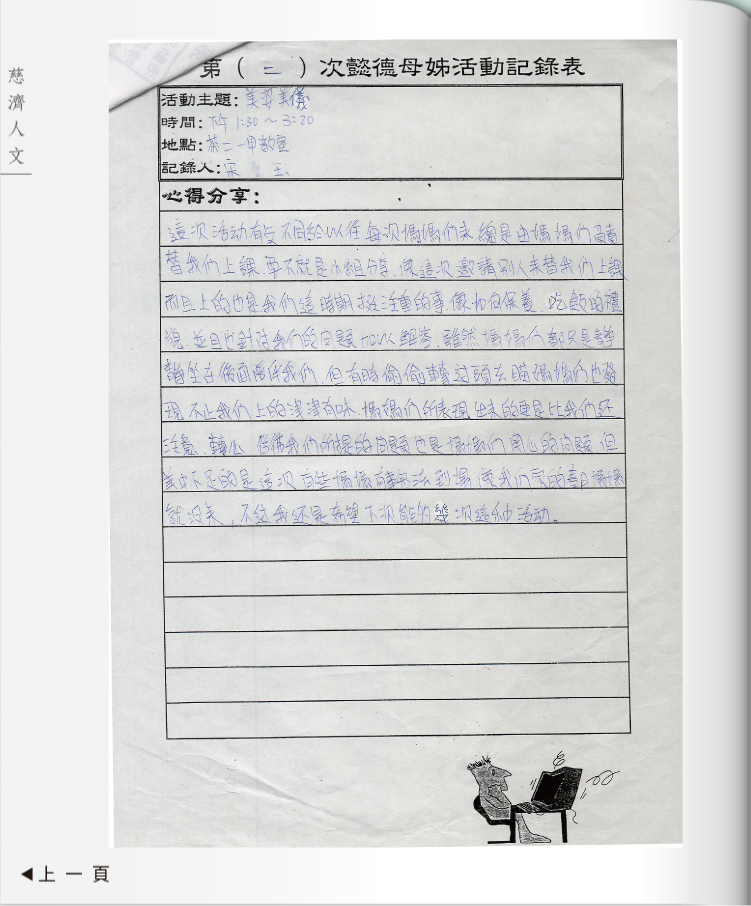 慈濟人文
第（二）次懿德母姊活動記錄表
活動主題：美姿美儀
時間：下午 1:30 ～ 3:20
地點：茶二一甲教室
記錄人：宋 玉
心得分享：
這次活动有点不同於以往每次媽媽們來總是由媽媽們負責
替我們上課,要不就是小組分享,像這次邀請別人來替我們上課
而且上的也是我們這時期挺注重的事,像如何保養、吃飯的禮
貌,並且也針对我們的问題加以解答,雖然媽媽們都只是靜
靜坐在後面陪伴我們,但有時偷偷轉过頭去瞄媽媽們也發
現,不止我們上的津津有味,媽媽們所表現出來的更是比我們还
注意、專心,仿佛我們所提的问題也是媽媽們関心的问題,但
美中不足的是這次有些媽媽有事無法到場,像我們家的 媽媽
就沒來,不过我还是希望下次能多幾次這种活动。
◀上一頁